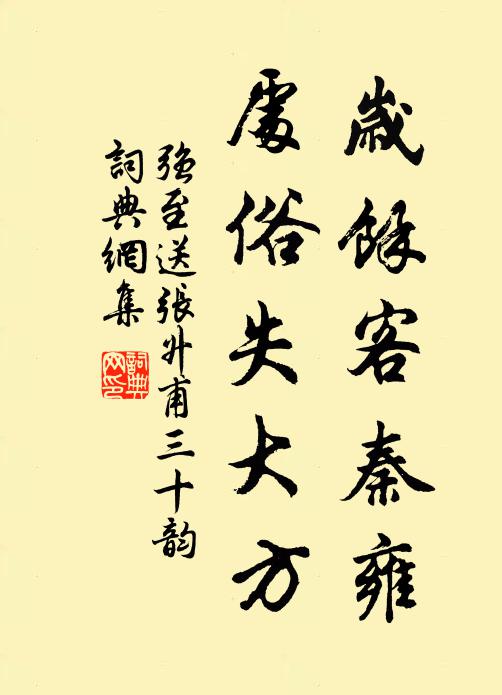 歲餘客秦雍
處俗失大方
強至送張升甫三十韵
詞典網集
詞典网印